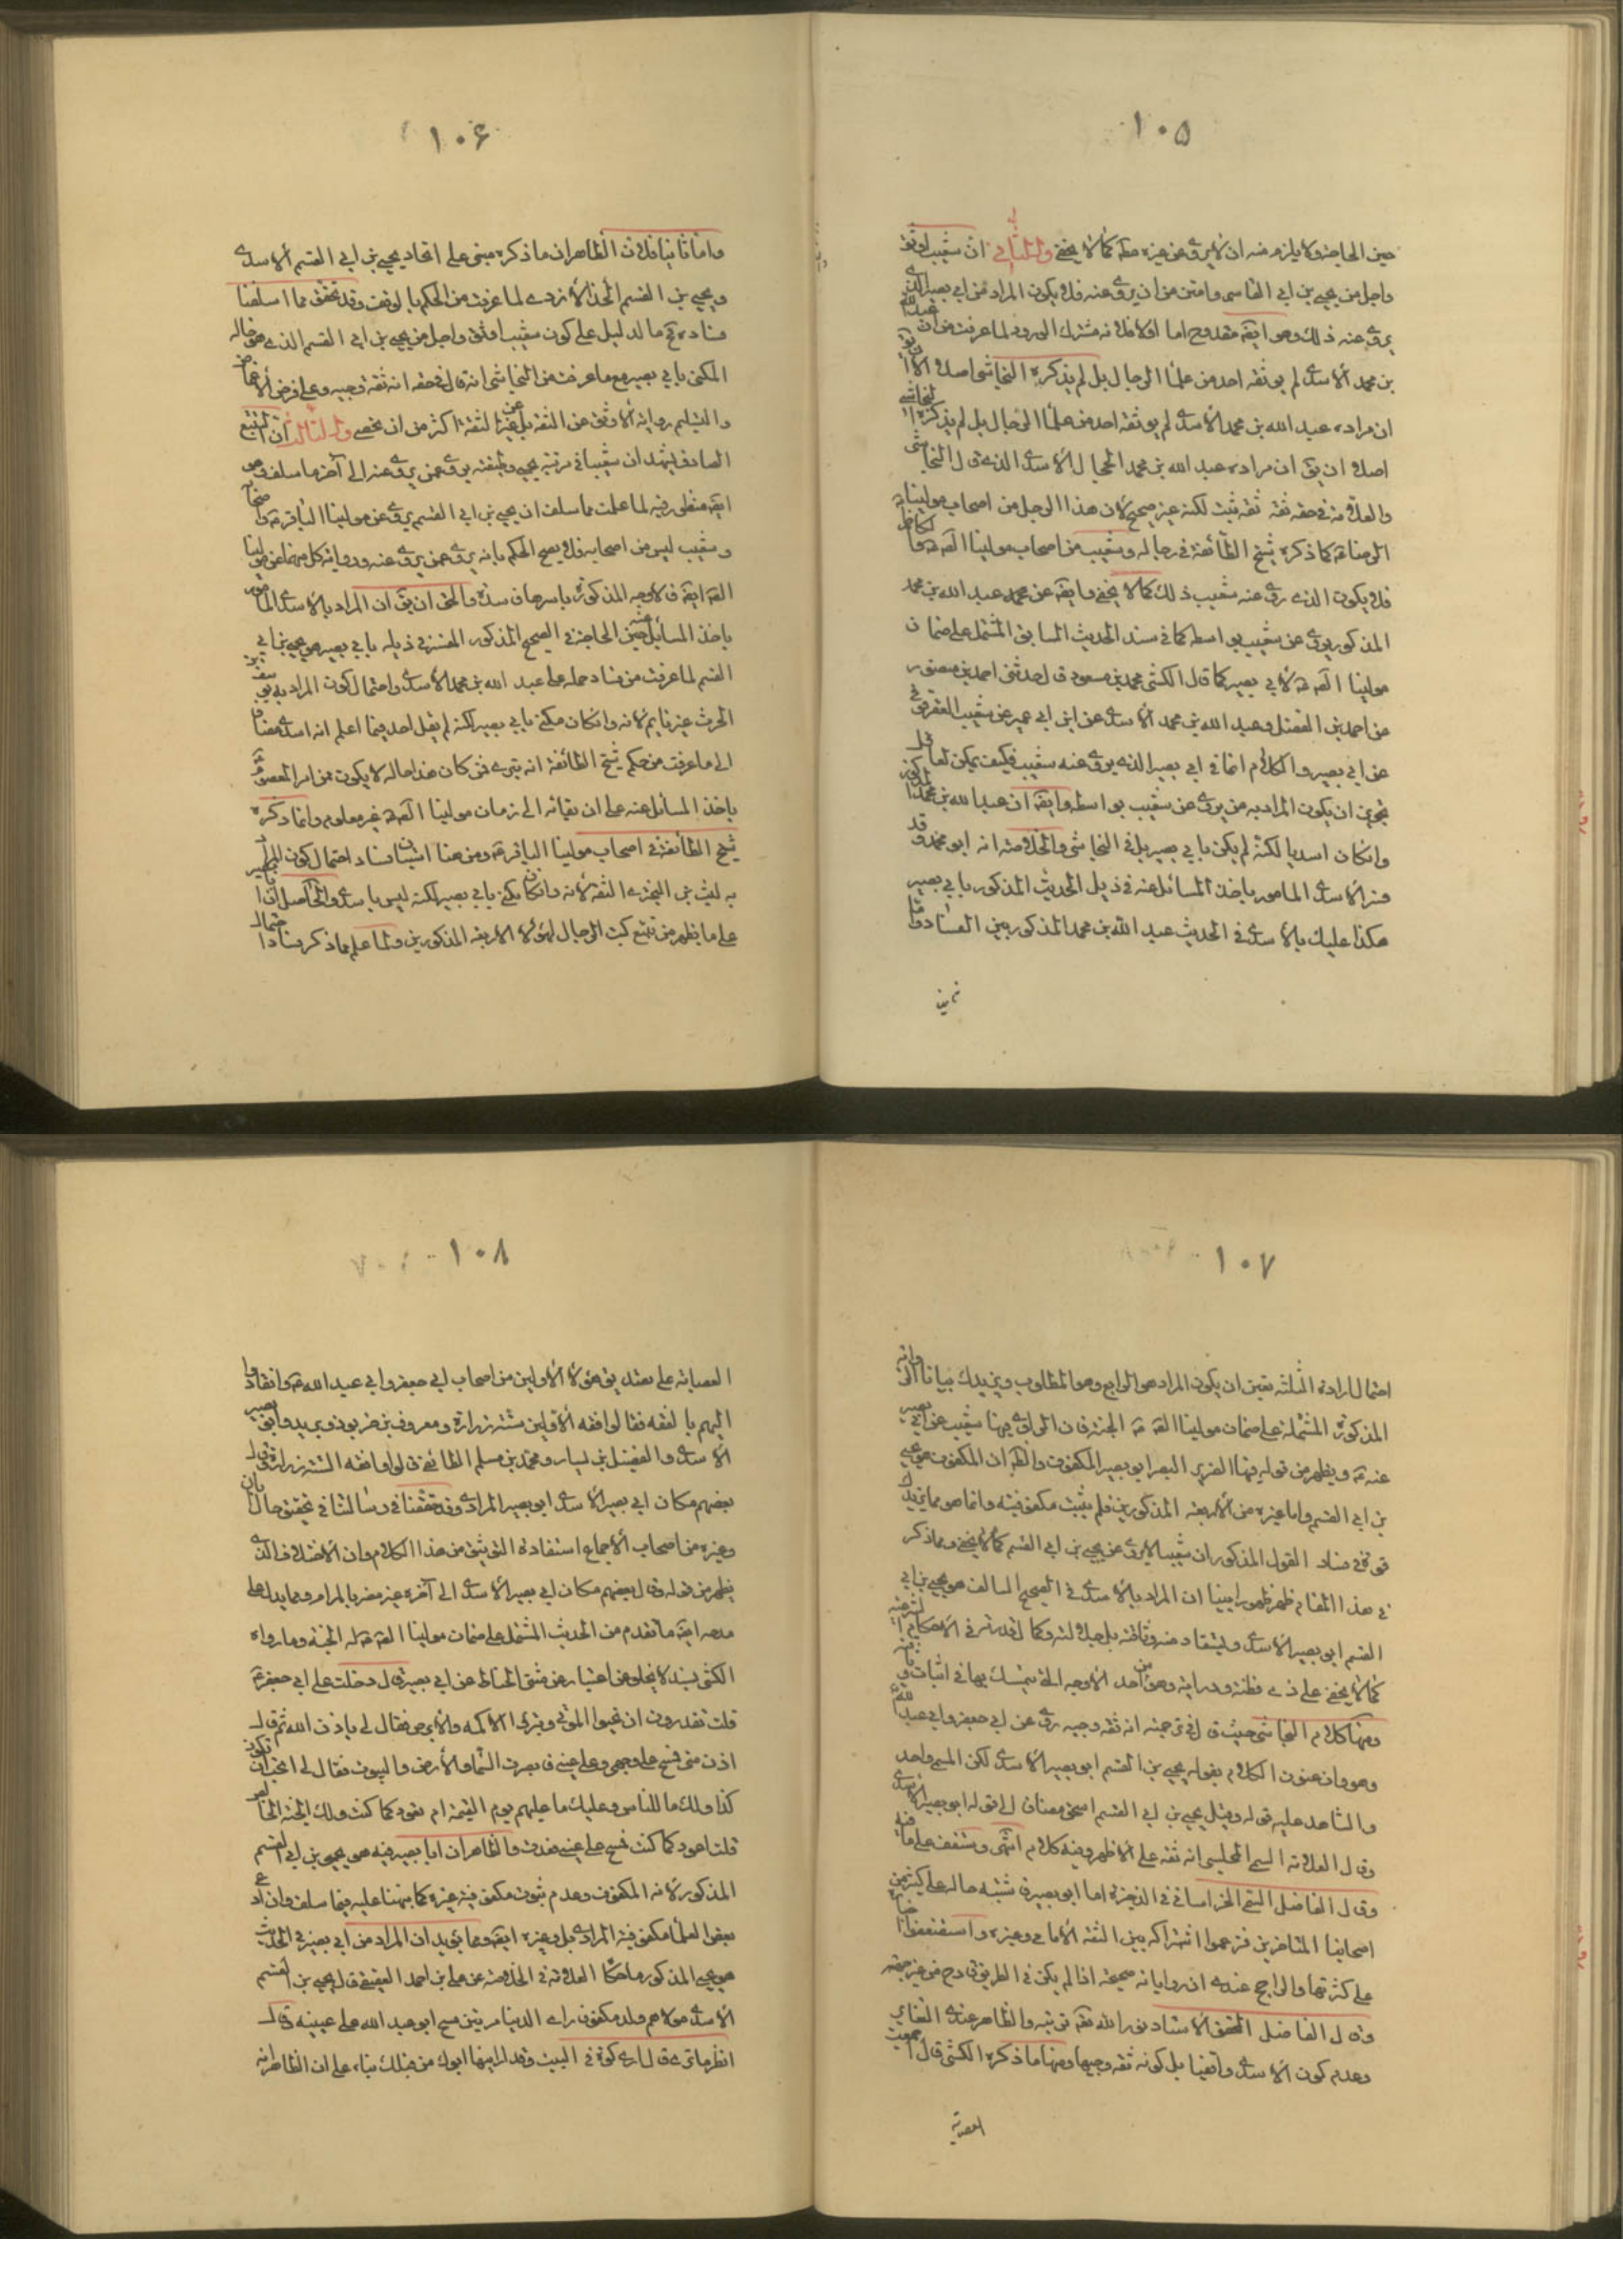 ١٠٥
حين الحاجة ولا يلزم منه ان لا يروى عن غيره مطة كما لا يخفى والثاني ان شعيب اوثق
واجل من يحيى بن ابي القاسم وامتن من ان يروى عنه فلا يكون المراد من ابي بصير الذي
يروى عنه ذلك وهو ايضه مقدوح اما اولا فلانه مشترك الورود لما عرفت من ان عبد الله
بن محمد الاسدي لم يوثقه احد من علماء الرجال بل لم يذكره النجاشي اصلا الا ان يق
ان مراده عبد الله بن محمد الاسدي لم يوثقه احد من علماء الرجال بل لم يذكره النجاشي
اصلا ان يق ان مراده عبد الله بن محمد الحجال الاسدي الذي قال النجاشي
والعلامة في حقه ثقة ثقة ثبت لكنه غير صحيح لان هذا الرجل من اصحاب مولينا
الرضا ع كما ذكره شيخ الطائفة في رجاله وشعيب من اصحاب مولينا الصه ع والكاظم
فلا يكون الذي روى عنه شعيب ذلك كما لا يخفى وايضه عن محمد عبد الله بن محمد
المذكور يروى عن شعيب بواسطة كما في سند الحديث السابق المشتمل على ضمان
مولينا الصه ع لابي بصير كما قال الكشي محمد بن مسعود قال حدثني احمد بن منصور
عن احمد بن الفضل وعبد الله بن محمد الاسدي عن ابن ابي عمير عن شعيب العقرقوفي
عن ابي بصير والكلام انما في ابي بصير الذي يروى عنه شعيب فكيف يمكن لعاقل
تجويز ان يكون المراد به من يروى عن شعيب بواسطة وايضه ان عبد الله بن محمد المذكور
وان كان اسديا لكنه لم يكن بابي بصير بل في النجاشي والخلاصة انه ابو محمد وقد
فسر الاسدي المامور باخذ المسائل عنه في ذيل الحديث المذكور بابي بصير
هكذا عليك بالاسدي في الحديث عبد الله بن محمد المذكور بين الفساد واما
ثانيا
١٠۶
واما ثانيا فلان الظاهر ان ما ذكره مبنى على اتحاد يحيى بن ابي القسم الاسدي
ويحيى بن القسم الحذاء الازدي لما عرفت من الحكم بالوقف وقد تحقق مما اسلفنا
فساده مع ما الدليل على كون شعيب اوثق واجل من يحيى بن ابي القسم الذي هو خاله
المكنى بابي بصير مع ما عرفت من النجاشي انه قال في حقه انه ثقة وجيه وعلى فرض الاغماض
والتسليم رواية الاوثق عن الثقة بل عن غير الثقة اكثر من ان تحصى والثالث ان التتبع
الصادق يشهد ان شعيبا في مرتبة يحيى وطبقته يروى عمن يروى عنه الى آخر ما سلف وهو
ايضه منظور فيه لما علمت مما سلف ان يحيى بن ابي القسم يروى عن مولينا الباقر ع
وشعيب ليس من اصحابه فلا يصح الحكم بانه يروى عمن يروى عنه ورواية كل منهما عن مولينا
الصه ايضه فالاوجه المذكورة باسرها فاسدة والحق ان يق ان المراد بالاسدي المامور
باخذ المسائل عنه حين الحاجة في الصحيح المذكور المفسر في ذيله بابي بصير هو يحيى بن ابي
القسم لما عرفت من فساد حمله على عبد الله بن محمد الاسدي واحتمال كون المراد به يوسف بن
الحرث غير قايم لانه وان كان مكنى بابي بصير لكنه لم يقل احد فيما اعلم انه اسدي مضافا
الى ما عرفت من حكم شيخ الطائفة انه بترى فمن كان هذا حاله لا يكون ممن امر المعصوم
باخذ المسائل عنه على ان بقائه الى زمان مولينا الصه ع غير معلوم وانما ذكره
شيخ الطائفة في اصحاب مولينا الباقر ع ومن هنا استبان فساد احتمال كون المراد
به ليث بن البختري الثقة لانه وان كان يكنى بابي بصير لكنه ليس باسدي والحاصل ان ابا بصير
على ما يظهر من تتبع كتب الرجال لهؤلاء الاربعة المذكورين ولما علم مما ذكر فساد احتمال
١٠٧
احتمال ارادة الثلثة تعين ان يكون المراد هو الرابع وهو المطلوب ويزيدك بيانا الرواية
المذكورة المشتملة على ضمان مولينا الصه ع الجنة فان الراوي فيها شعيب عن ابي بصير
عنه ع ويظهر من قوله فيها الضرير البصر ابو بصير المكفوف والظه ان المكفوف هو يحيى
بن ابي القسم واما غيره من الاربعة المذكورين فلم يثبت مكفوفيته وانما هو مما يزيدك
قوة في فساد القول المذكور ان شعيبا لا يروى عن يحيى بن ابي القسم كما لا يخفى ومما ذكر
في هذا المقام ظهر ظهورا بينا ان المراد بالاسدي في الصحيح السالف هو يحيى بن ابي
القسم ابو بصير الاسدي ويستفاد منه وثاقته بل جلالته وكمال قدرته في الاحكام الشرعية
كما لا يخفى على ذي فطنة ودراية وهو احد من الاوجه التي يتمسك بها في اثبات وثاقته
ومنها كلام النجاشي حيث قال في ترجمته انه ثقة وجيه روى عن ابي جعفر وابي عبد الله
وهو وان عنون الكلام بقوله يحيى بن القسم ابو بصير الاسدي لكن المسمى واحد
والشاهد عليه قوله وقيل يحيى بن ابي القسم اسحق مضافا الى قوله ابو بصير الاسدي
وقال العلامة السمي المجلسي انه ثقة على الاظهر وفيه كلام انتهى وستقف على ما فيه
وقال الفاضل السمي الخراساني في الذخيرة اما ابو بصير فاشتبه حاله على كثير من
اصحابنا المتاخرين فزعموا اشتراكه بين الثقة الامامي وغيره واستضعفوا اخباره
على كثرتها والراجح عندي ان رواياته صحيحة اذا لم يكن في الطريق قادح من غير جهته
وقال الفاضل المحقق الاستاد نور الله تعه تربته والظاهر عندي التغاير
وعدم كون الاسدي واقفيا بل كونه ثقة وجيها ومنها ما ذكره الكشي قال اجمعت
العصابة
١٠٨
العصابة على تصديق هؤلاء الاولين من اصحاب ابي جعفر وابي عبد الله ع وانقادوا
اليهم بالفقه فقالوا افقه الاولين ستة زرارة ومعروف بن خربوذ وبريد وابو بصير
الاسدي والفضيل بن يسار ومحمد بن مسلم الطائفي قالوا وافقه الستة زرارة وقال
بعضهم مكان ابي بصير الاسدي ابو بصير المرادي وقد حققنا في رسالتنا في تحقيق حال ابان
وغيره من اصحاب الاجماع استفادة التوثيق من هذا الكلام وان الاختلاف الذي
يظهر من قوله وقال بعضهم مكان ابي بصير الاسدي الى آخره غير مضر بالمرام ومما يدل على
مدحه ايضه ما تقدم من الحديث المشتمل على ضمان مولينا الصه ع له الجنة وما رواه
الكشي بسند لا يخلو عن اعتبار عن مثنى الحناط عن ابي بصير قال دخلت على ابي جعفر ع
قلت تقدرون ان تحيوا الموتى وتبرئ الاكمه والابرص فقال لي باذن الله ثم قال
ادن مني فمسح على وجهي وعلى عيني فابصرت السماء والارض والبيوت فقال لي اتحب ان تكون
كذا ولك ما للناس وعليك ما عليهم يوم القيمة ام تعود كما كنت ولك الجنة الخالص
قلت اعود كما كنت فمسح على عيني فعدت والظاهر ان ابا بصير فيه هو يحيى بن ابي القسم
المذكور لانه المكفوف وعدم ثبوت مكفوفية غيره كما نبهنا عليه فيما سلف وان ادعى
بعض العلماء مكفوفية المرادي بل وغيره ايضه ومما يؤيد ان المراد من ابي بصير في الحديث
هو يحيى المذكور ما حكاه العلامة في الخلاصة عن علي ابن احمد العقيقي قال يحيى بن القسم
الاسدي مولاهم ولد مكفوفا راى الدنيا مرتين مسح ابو عبد الله على عينيه وقال
انظر ما ترى قال ارى كوة في البيت وقد ارانيها ابوك من قبلك بناء على ان الظاهر انه